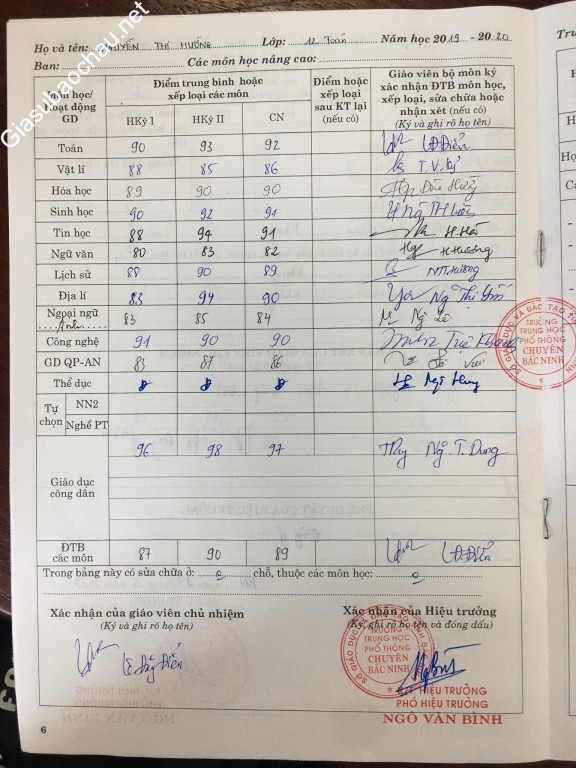 Giasubaochau.net
Họ và tên: NGUYỄN THỊ HƯỜNG Lớp: 12 Toán Năm học 2019 - 2020
Ban: Các môn học nâng cao:
Môn học/ Hoạt động GD
Điểm trung bình hoặc xếp loại các môn
HKỳ I HKỳ II CN
Điểm hoặc xếp loại sau KT lại (nếu có)
Giáo viên bộ môn ký xác nhận ĐTB môn học, xếp loại, sửa chữa hoặc nhận xét (nếu có)
(Ký và ghi rõ họ tên)
Toán 90 93 92 LĐĐiển
Vật lí 88 85 86 T.V.
Hóa học 89 90 90
Sinh học 90 92 91
Tin học 88 94 91 H.Hà
Ngữ văn 80 83 82 H.Hương
Lịch sử 88 90 89 NTHương
Địa lí 83 94 90
Ngoại ngữ Anh 83 85 84
Công nghệ 91 90 90
GD QP-AN 83 87 86
Thể dục Đ Đ Đ Ngô Hùng
Tự chọn NN2
Nghề PT
Giáo dục công dân 96 98 97 Ng. T. Dung
ĐTB các môn 87 90 89 LĐĐiển
Trong bảng này có sửa chữa ở: 0 chỗ, thuộc các môn học: 0
Xác nhận của giáo viên chủ nhiệm
(Ký và ghi rõ họ tên)
Xác nhận của Hiệu trưởng
(Ký, ghi rõ họ tên và đóng dấu)
TRƯỜNG
TRUNG HỌC
PHỔ THÔNG
CHUYÊN
BẮC NINH
KT. HIỆU TRƯỞNG
PHÓ HIỆU TRƯỞNG
NGÔ VĂN BÌNH
6
SỞ GIÁO DỤC VÀ ĐÀO TẠO
TRƯỜNG
TRUNG HỌC
PHỔ THÔNG
CHUYÊN
BẮC NINH